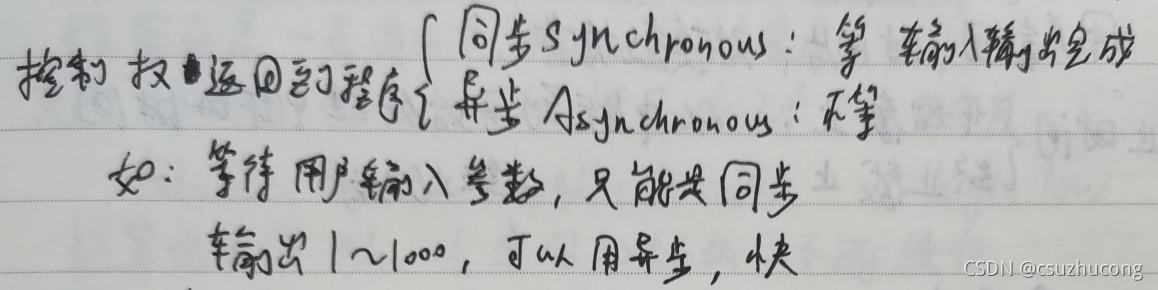 同步 Synchronous：等 输入输出完成
控制权返回到程序
异步 Asynchronous：不等
如：等待用户输入参数，只能是同步
输出1~1000，可以用异步，快
CSDN @csuzhucong